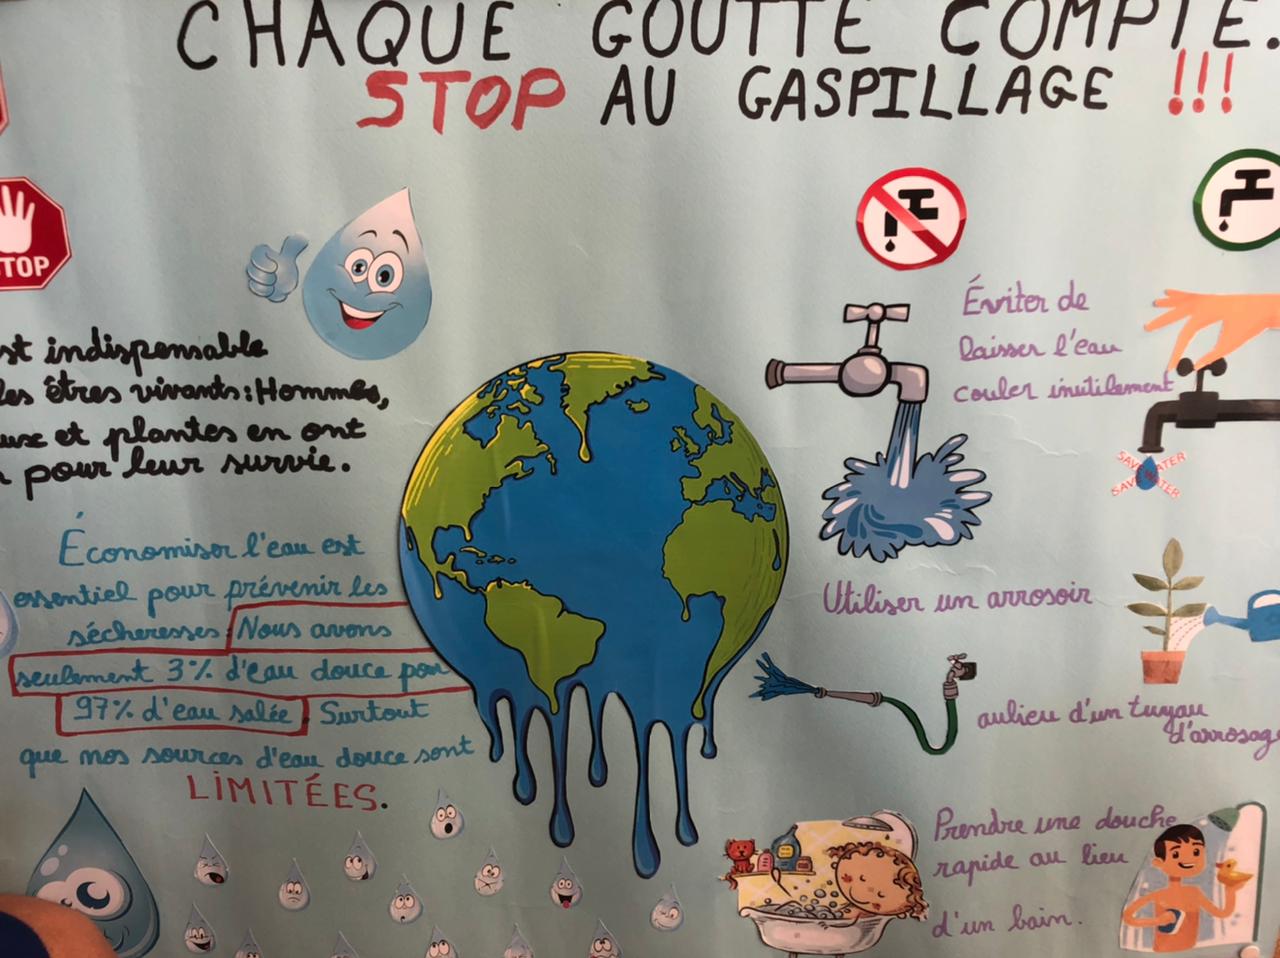 CHAQUE GOUTTE COMPTE.
STOP AU GASPILLAGE !!!
STOP
st indispensable
les êtres vivants : Hommes,
aux et plantes en ont
pour leur survie.
Économiser l'eau est
essentiel pour prévenir les
sécheresses. Nous avons
seulement 3% d'eau douce pour
97% d'eau salée. Surtout
que nos sources d'eau douce sont
LIMITÉES.
Éviter de
laisser l'eau
couler inutilement
SAVE WATER
SAVE WATER
Utiliser un arrosoir
aulieu d'un tuyau
d'arrosage
Prendre une douche
rapide au lieu
d'un bain.